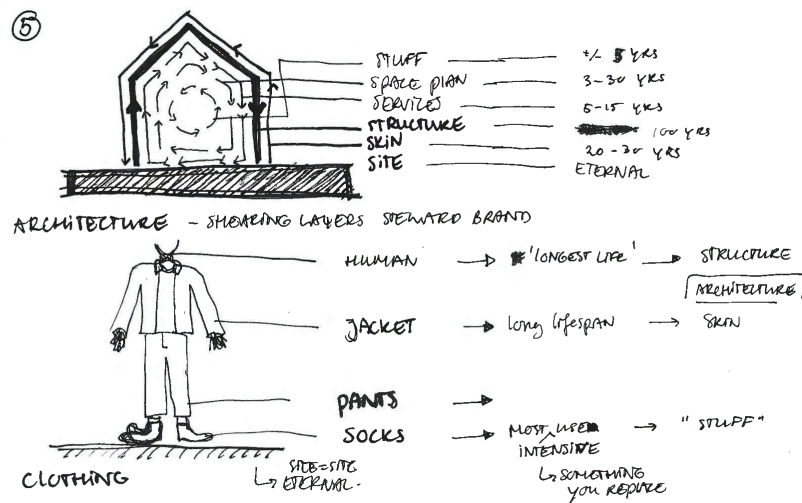 5
STUFF +/- 5 YRS
SPACE PLAN 3-30 YRS
SERVICES 5-15 YRS
STRUCTURE 100 YRS
SKIN 20-30 YRS
SITE ETERNAL
ARCHITECTURE - SHEARING LAYERS STEWARD BRAND
HUMAN → 'LONGEST LIFE' → STRUCTURE
ARCHITECTURE
JACKET → long lifespan → SKIN
PANTS →
SOCKS → MOST USE → "STUFF"
INTENSIVE
CLOTHING
SITE=SITE
↳ ETERNAL.
↳ SOMETHING
YOU REPLACE